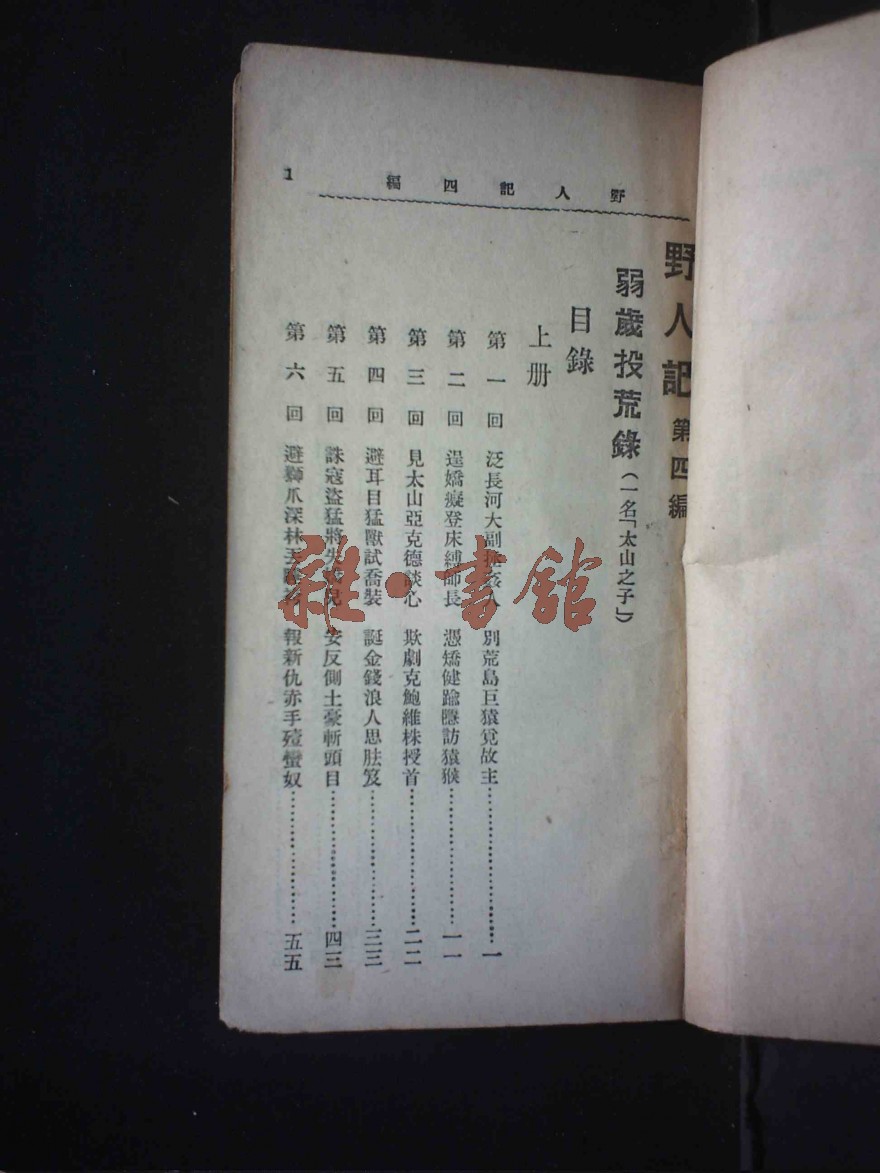 野人記四編
1
野人記 第四編
弱歲投荒錄(一名「太山之子」)
目錄
上册
第一回 泛長河大副拯孩人 別荒島巨猿覓故主 一
第二回 逞嬌癡登床縛師長 憑矯健踰牕訪猿猴 一一
第三回 見太山亞克德談心 欺劇克鮑維株授首 二二
第四回 避耳目猛獸試喬裝 誕金錢浪人思胠笈 三三
第五回 誅寇盜猛將失 兒 安反側土豪斬頭目 四三
第六回 避獅爪深林 報新仇赤手殪蠻奴 五五
雜·書館